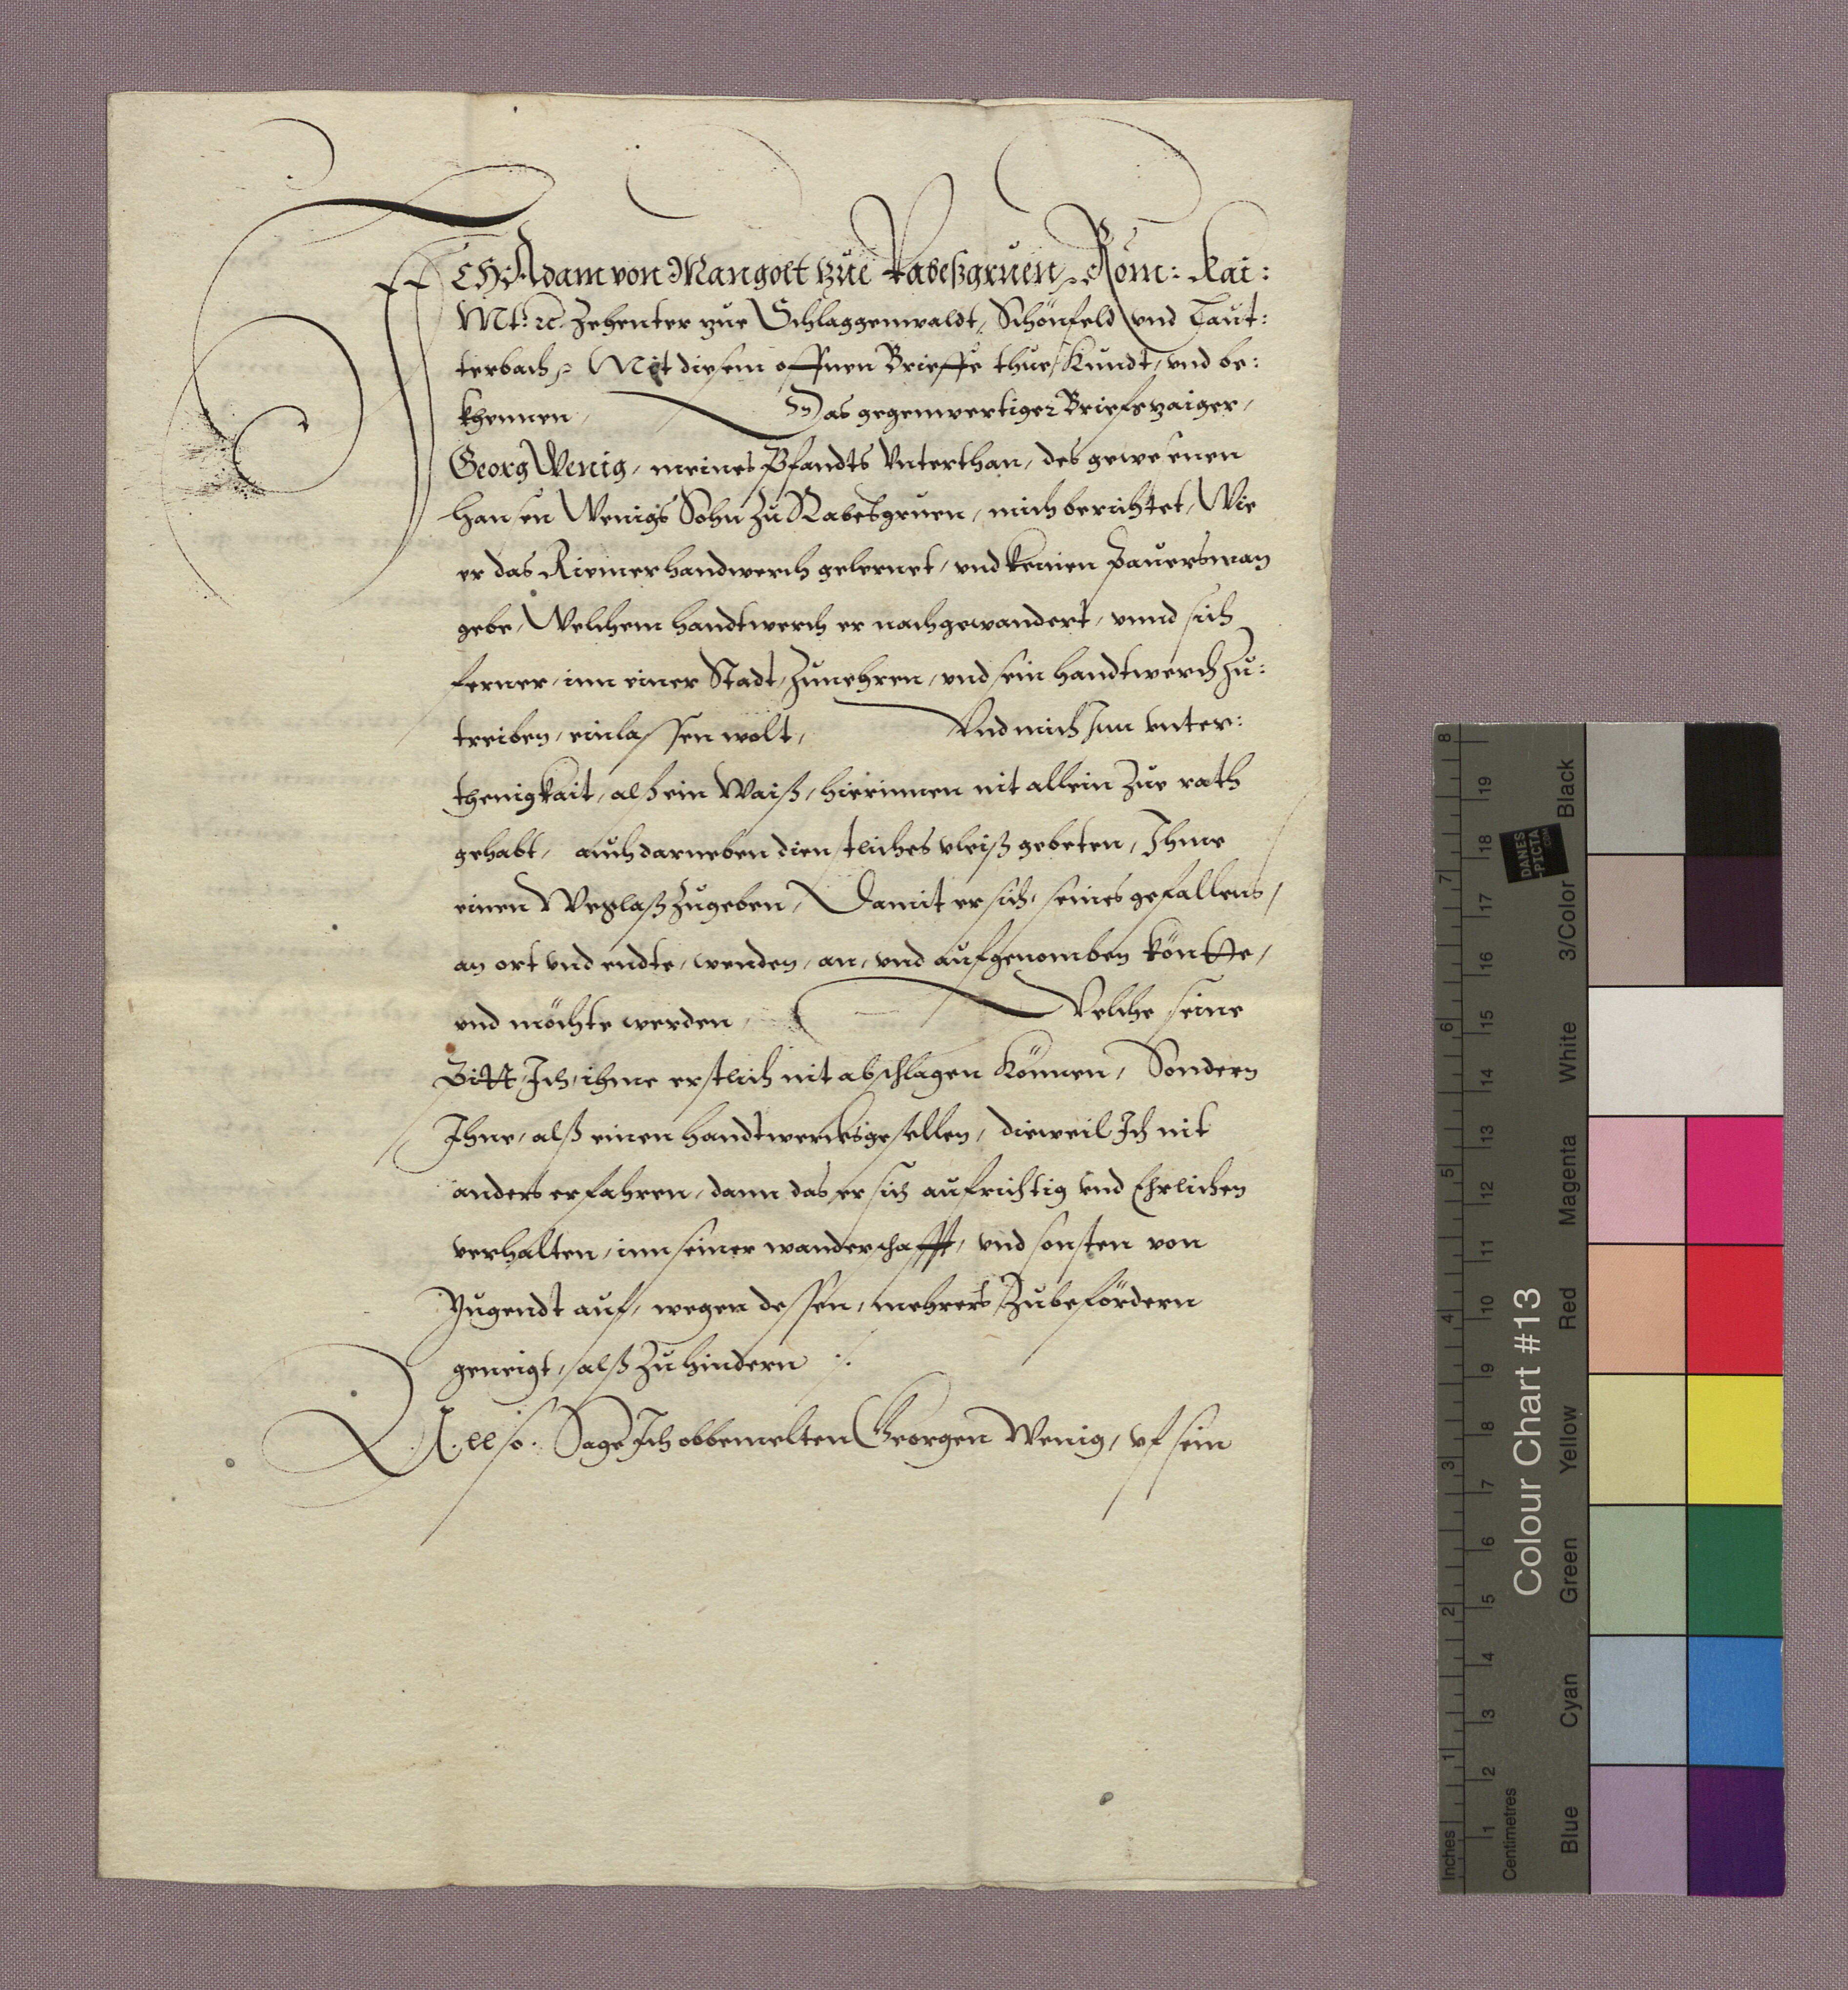 ICH Adam von Mangolt zue Rabeßgruen, Röm: Kai:
Mt: ꝛc. Zehenter zue Schlaggenwaldt, Schönfeld vnd Laut:
terbach, Mit diesem offnen Brieffe thue Kundt, vnd be:
khennen, Das gegenwertiger Briefszaiger,
Georg Wenig, meines Pfandts Vnterthan, des gewesenen
Hansen Wenigs Sohn zu Rabesgruen, mich berichtet, Wie
er das Riemerhandwerch gelernet, vnd keinen Pauersman
gebe, Welchem handtwerch er nachgewandert, vnnd sich
ferner, inn einer Stadt, zunehren, vnd sein handtwerch zu:
treiben, einlassen wolt, Vnd mich Inn vnter:
thenigkait, alß ein Waiß, hierinnen nit allein zue rath
gehabt, auch darneben dienstliches vleiß gebeten, Ihme
einen Weglaß zugeben, Damit er sich, seines gefallens,
an ort vnd endte, wenden, an, vnd aufgenomben köntte,
vnd möchte werden, Welche seine
Bitt, Ich, ihme erstlich nit abschlagen können, Sondern
Ihne, alß einen handtwerchsgesellen, dieweil Ich nit
anders erfahren, dann das er sich aufrichtig vnd Ehrlichen
verhalten, inn seiner wanderschafft, vnd sonsten von
Jugendt auf, wegen dessen, mehrers zubefördern
geneigt, alß zu hindern ./.
Allso. Sage Ich obbemelten Georgen Wenig, vf sein
8 7 6 5 4 3 2 1 Inches
19 18 17 16 15 14 13 12 11 10 9 8 7 6 5 4 3 2 1 Centimetres
DANES
-PICTA
.COM
Colour Chart #13
Black
3/Color
White
Magenta
Red
Yellow
Green
Cyan
Blue